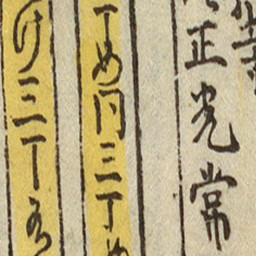 正光常
丁め同三丁め
け三丁